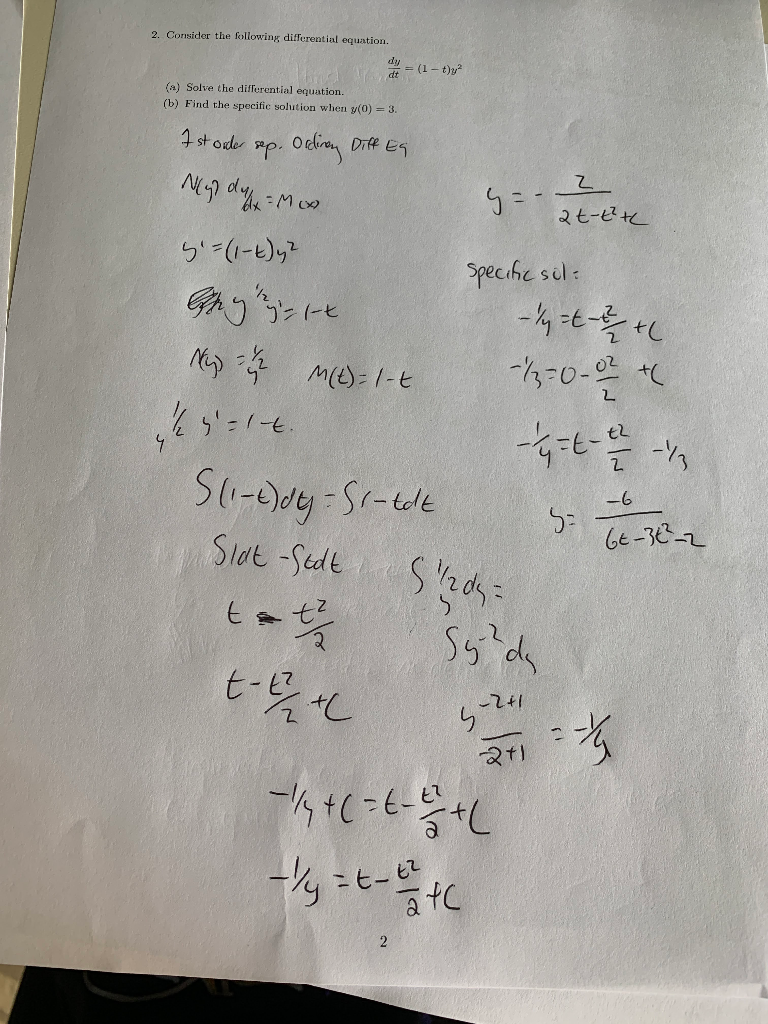 2. Consider the following differential equation.
dy/dt = (1 − t)y²
(a) Solve the differential equation.
(b) Find the specific solution when y(0) = 3.
1st order sep. Ordinary Diff Eq
N(y) dy/dx = M(x)
y' = (1-t)y²
y 1/2 y' = 1-t
N(y) = 1/y² M(t) = 1-t
1/y² y' = 1-t.
S(1-t)dy = S1-tdt
S1dt - Stdt
t - t²/2
t - t²/2 + C
S 1/y² dy =
Sy⁻² dy
y⁻²⁺¹/-2+1 = -1/y
-1/y + C = t - t²/2 + C
-1/y = t - t²/2 + C
y = - 2/2t-t²+C
Specific sol:
-1/y = t - t²/2 + C
-1/3 = 0 - 0²/2 + C
-1/y = t - t²/2 - 1/3
y = -6/6t-3t²-2
2